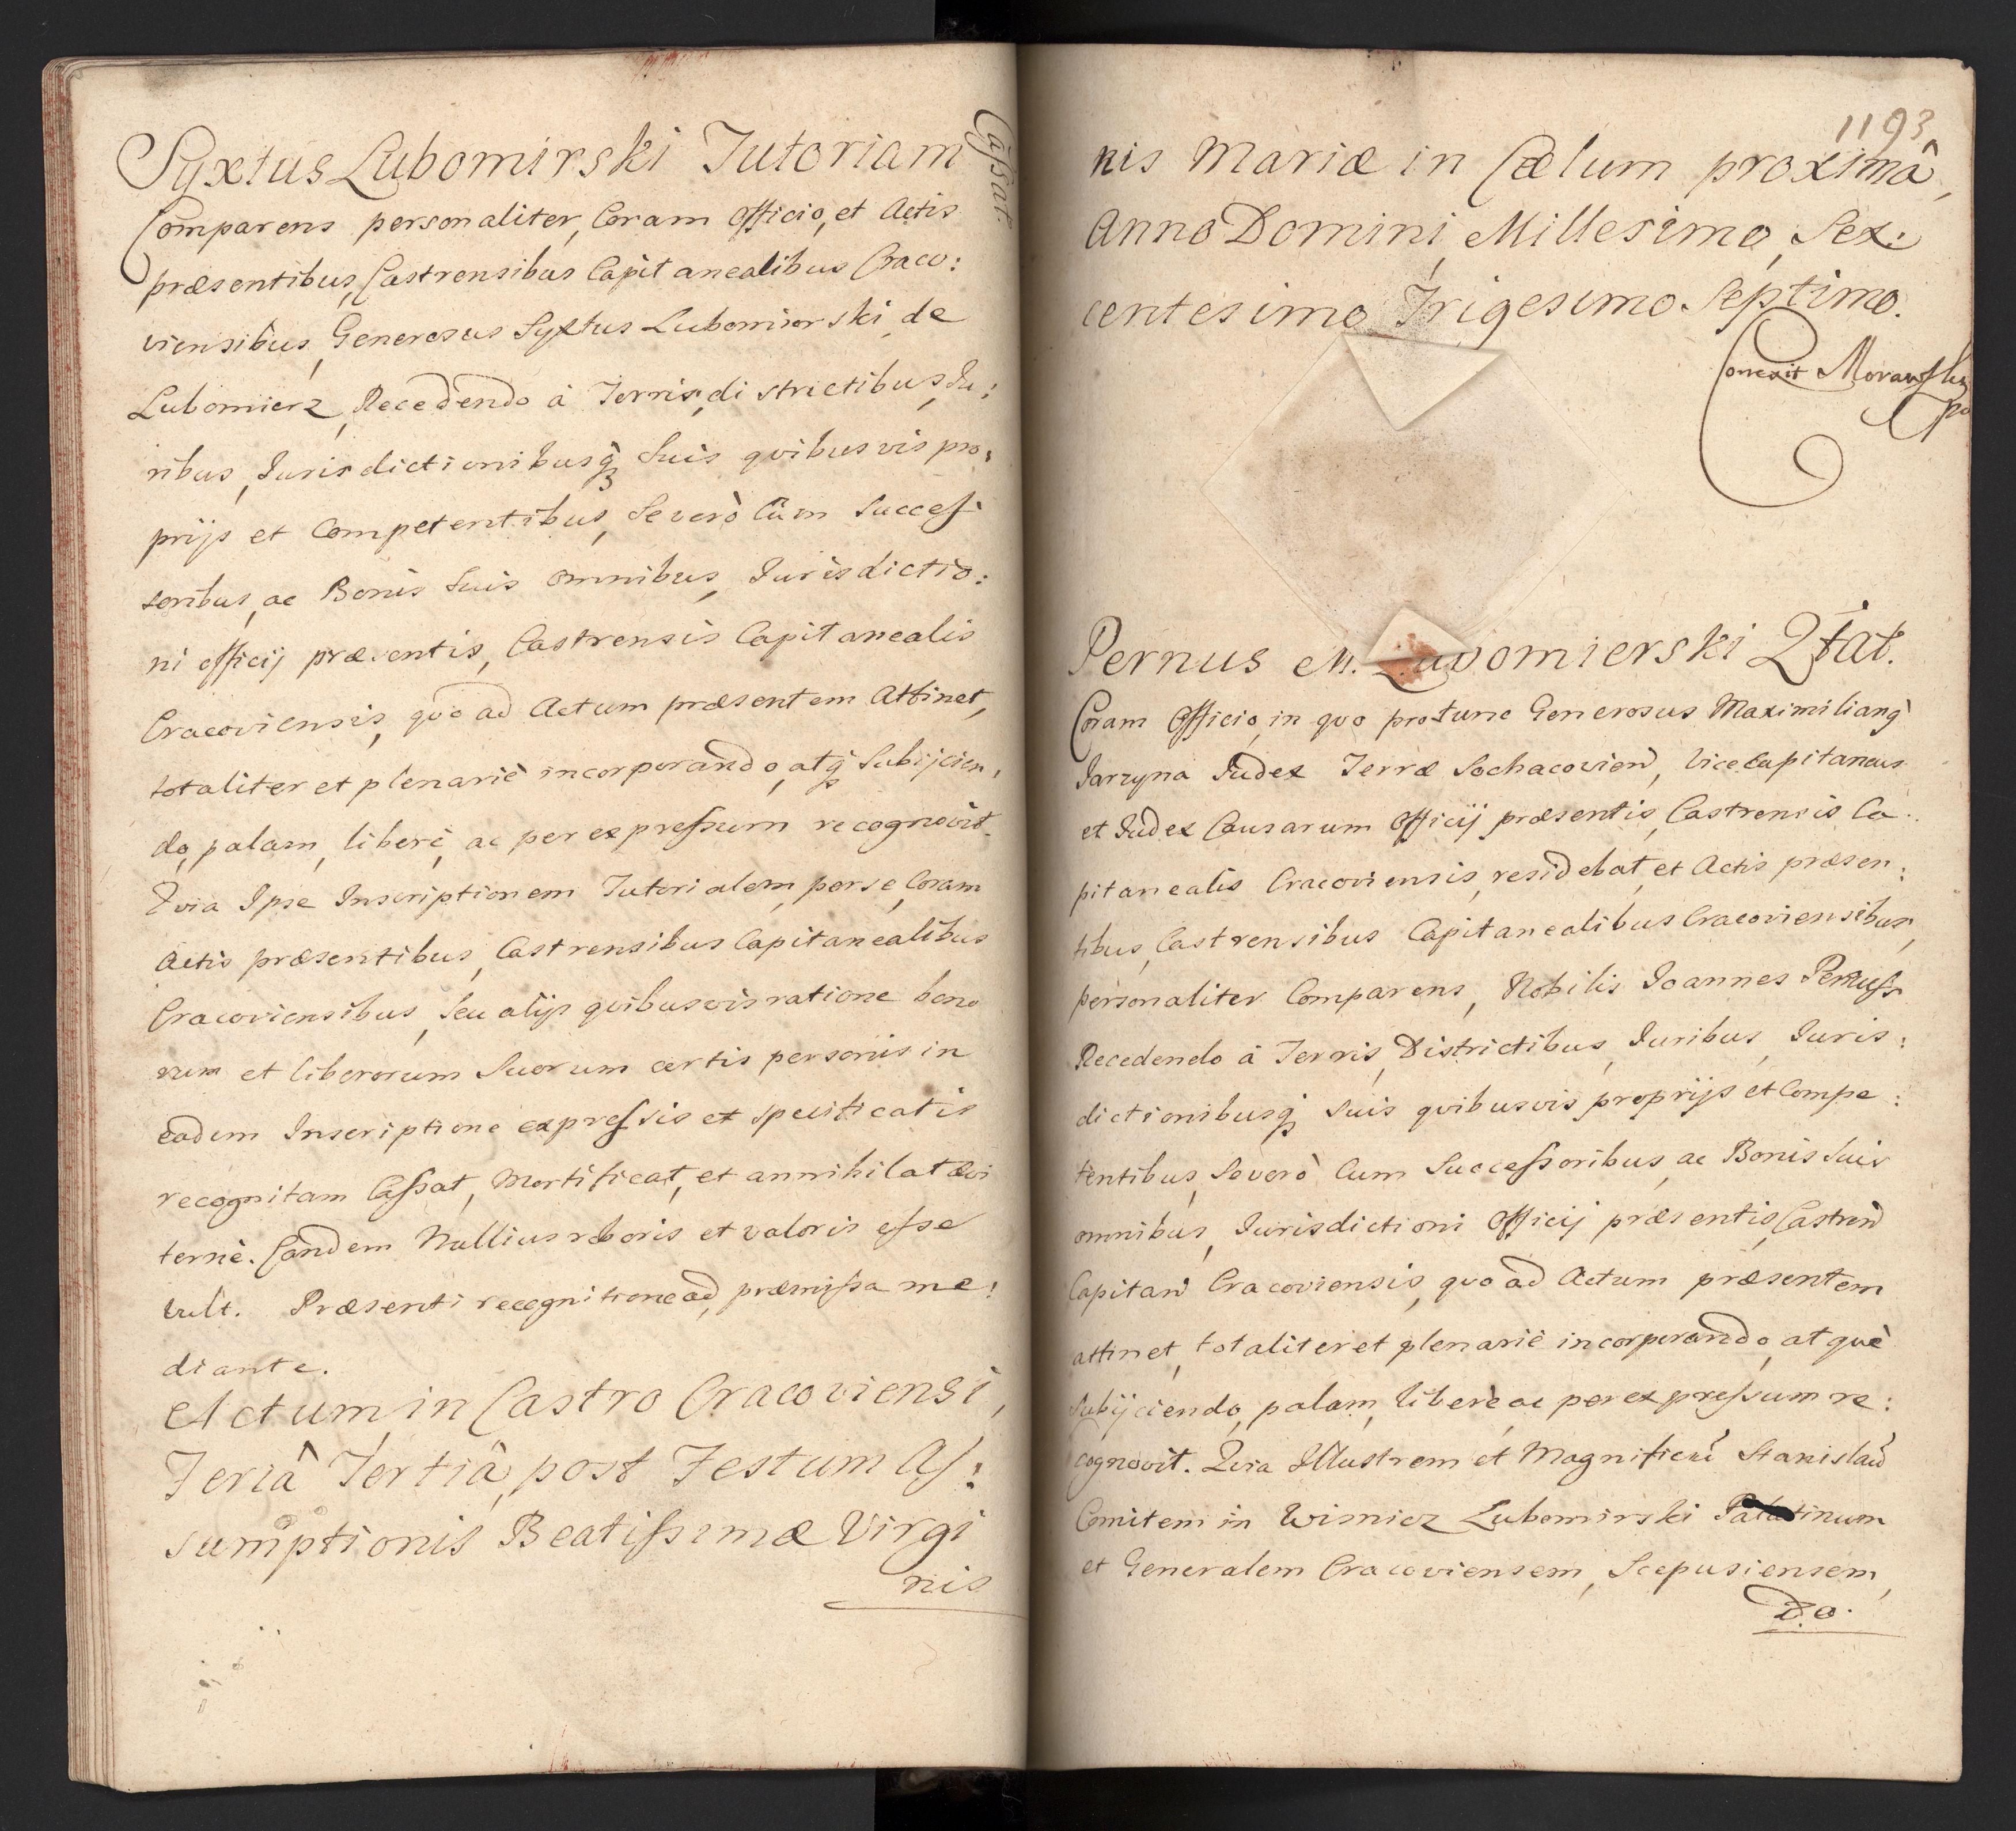 Syxtus Lubomirski Tutoriam
Cassat.
Comparens personaliter, Coram Officio, et Actis
præsentibus, Castrensibus Capitanealibus Craco:
viensibus, Generosus Syxtus Lubomierski, de
Lubomierz, Recedendo à Terris, districtibus, Ju:
ribus, Jurisdictionibusq̃ Suis qvibusvis pro:
prijs et Competentibus, Se verò Cùm Success:
soribus, ac Bonis Suis omnibus, Jurisdictio:
ni officij præsentis, Castrensis Capitanealis
Cracoviensis, qvo ad Actum præsentem Attinet,
totaliter et plenariè incorporando, atq̃ Subijcien:
do, palam, liberè, ac per expressum recognovit.
Qvia Ipse Inscriptionem Tutorialem, per se, Coram
Actis præsentibus, Castrensibus Capitanealibus
Cracoviensibus, Seu alijs qvibusvis ratione bono
rum et liberorum Suorum certis personis in
eadem Inscriptione expressis et specificatis
recognitam Cassat, Mortificat, et annihilat ævi
ternè. Eandem Nullius roboris et valoris esse
vult. Præsenti recognitione ad præmissa me:
diante.
Actum in Castro Cracoviensi,
Feriâ Tertiâ, post Festum As:
sumptionis Beatissimæ Virgi
nis
1193
nis Mariæ in Cælum proximâ,
Anno Domini, Millesimo, Sex:
centesimo Trigesimo Septimo.
Correxit Morawsky
Pernus M. Lubomierski Qtat.
Coram Officio, in qvo protunc Generosus Maximilianq̃
Jarzyna Judex Terræ Sochacovien̄, Vicecapitaneus
et Judex Causarum Officij præsentis, Castrensis Ca:
pitanealis Cracoviensis, residebat, et Actis præsen:
tibus, Castrensibus Capitanealibus Cracoviensibus,
personaliter Comparens, Nobilis Joannes Pernuss
Recedendo à Terris, Districtibus, Juribus, Juris:
dictionibusq̃ suis qvibusvis proprijs et Compe:
tentibus, Se verò Cum Successoribus, ac Bonis Suis
omnibus, Jurisdictioni Officij præsentis, Castren̄
Capitan̄ Cracoviensis, qvo ad Actum præsentem
attinet, totaliter et plenariè incorporando, atquè
Subijciendo, palam, liberè ac per expressum re:
cognovit. Qvia Illustrem et Magnificum̄ Stanislaū
Comitem in Wisnicz Lubomirski Palatinum
et Generalem Cracoviensem, Scepusiensem,